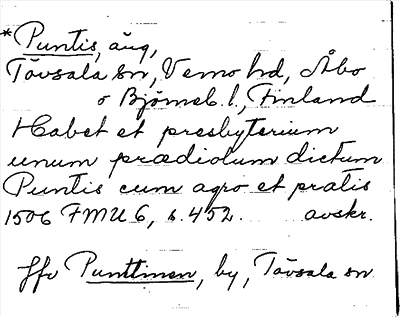 *Puntis, äng,
Tövsala sn, Vemo hd, Åbo
o Björneb. l., Finland
Habet et presbyterium
unum prædiolum dictum
Puntis cum agro et pratis
1506 FMU 6, s. 452. avskr.
Jfr Punttinen, by, Tövsala sn.